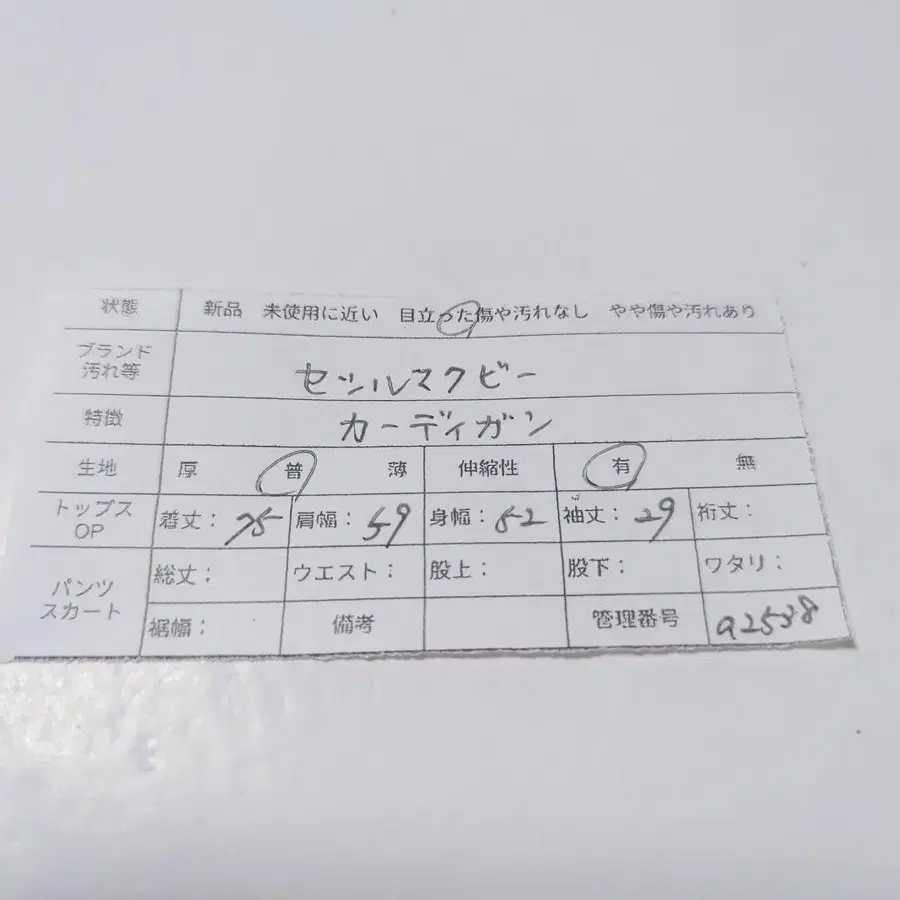 状態 新品 未使用に近い 目立った傷や汚れなし やや傷や汚れあり
ブランド
汚れ等 セシルマクビー
特徴 カーディガン
生地 厚 普 薄 伸縮性 有 無
トップス
OP 着丈: 75 肩幅: 59 身幅: 52 袖丈: 29 裄丈:
パンツ
スカート 総丈: ウエスト: 股上: 股下: ワタリ:
裾幅: 備考 管理番号 a2538